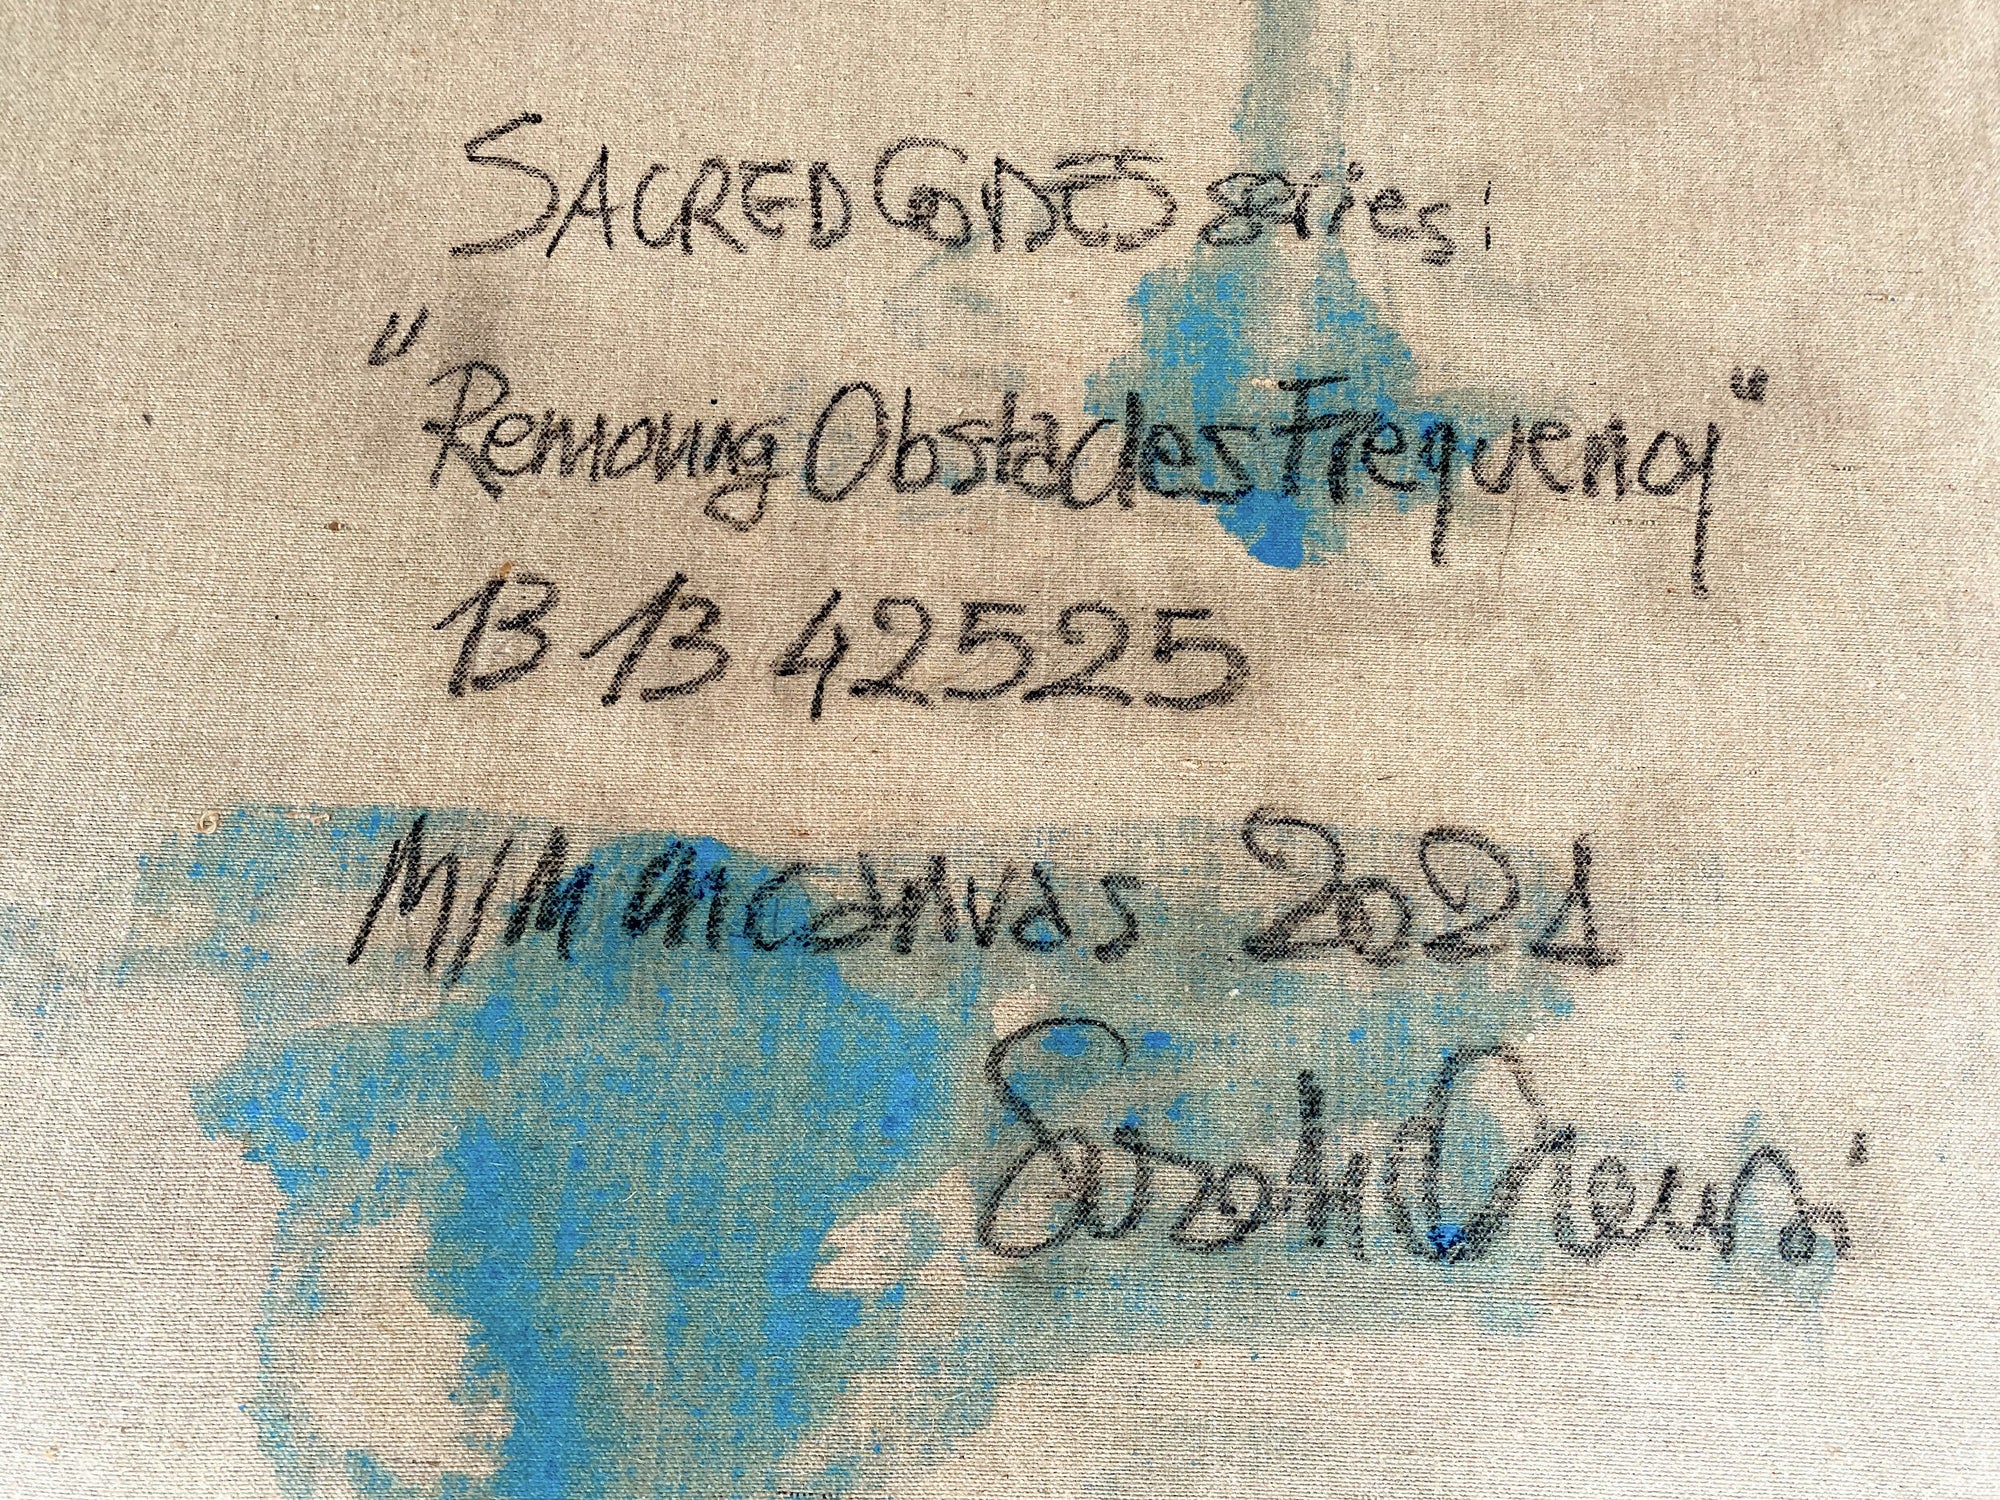 SACRED CODES series:
"Removing Obstacles Frequency"
B 13 42525
M/M canvas 2021
Sarah